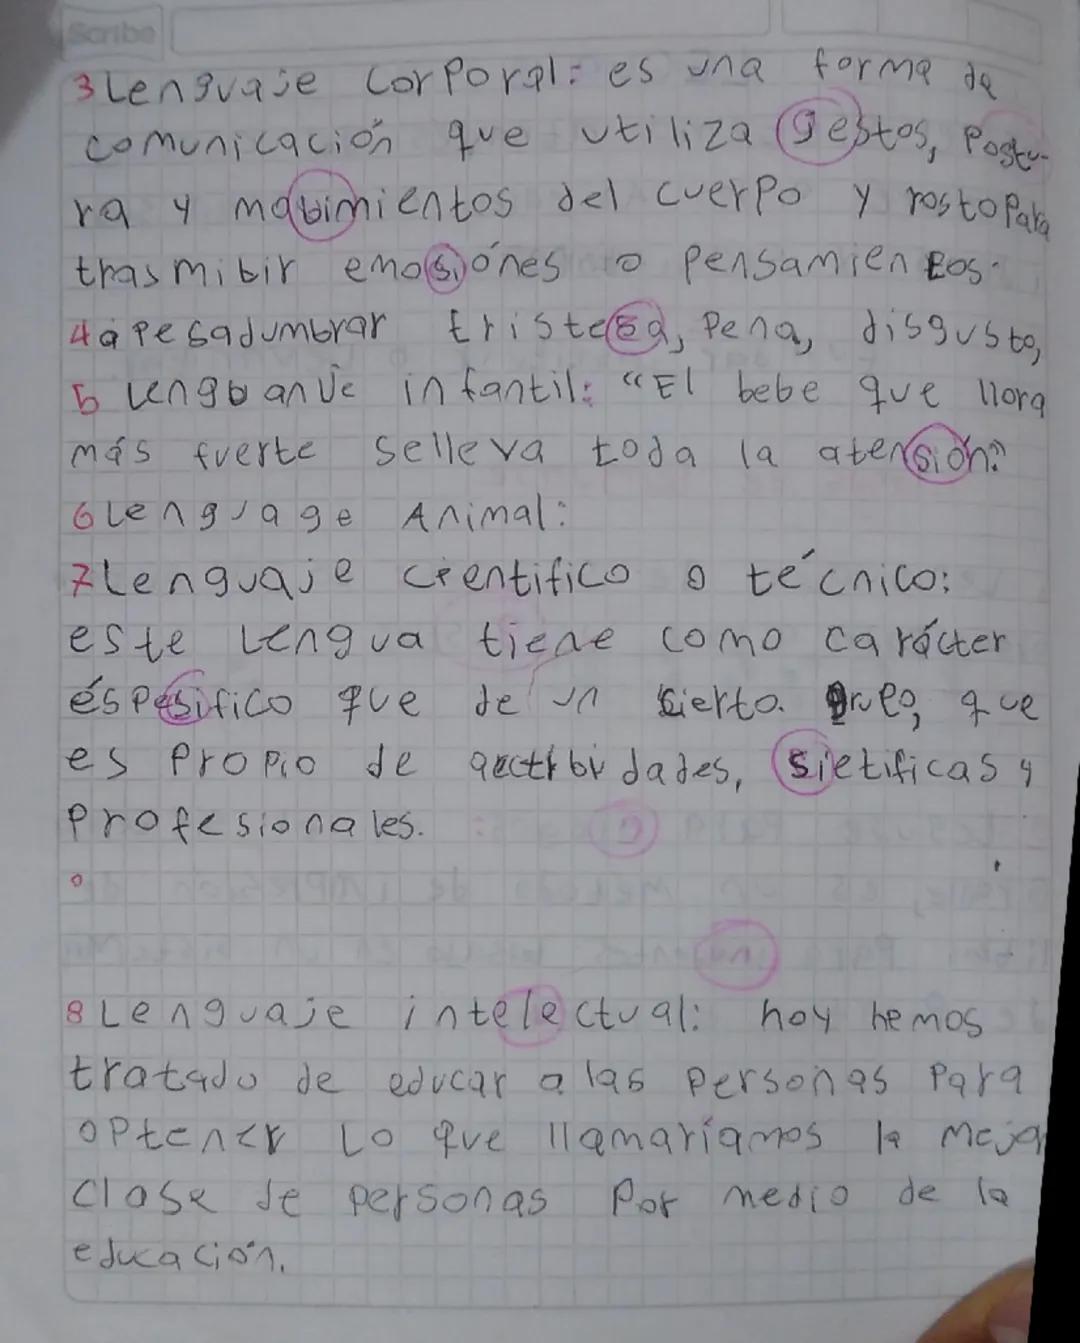 Scribe
3 Lenguaje Corporal: es una forma de
comunicación que utiliza gestos, Postu-
ra y mobimientos del cuerpo y rosto Para
trasmibir emosiónes o pensamientos.
4 apesadumbrar tristesa, Pena, disgusto,
5 infantil: "El bebe que llora
más fuerte selleva toda la atensión"
6 Lenguage Animal:
7 Lenguaje cientifico o técnico:
este Lengua tiene como carácter
éspesifico que de un sierto grupo, que
es Propio de sietificas y
Profesionales.
8 Lenguaje intelectual: hoy hemos
tratado de educar a las personas Para
optener Lo que llamaríamos la mejor
Clase de personas Por medio de la
educación.